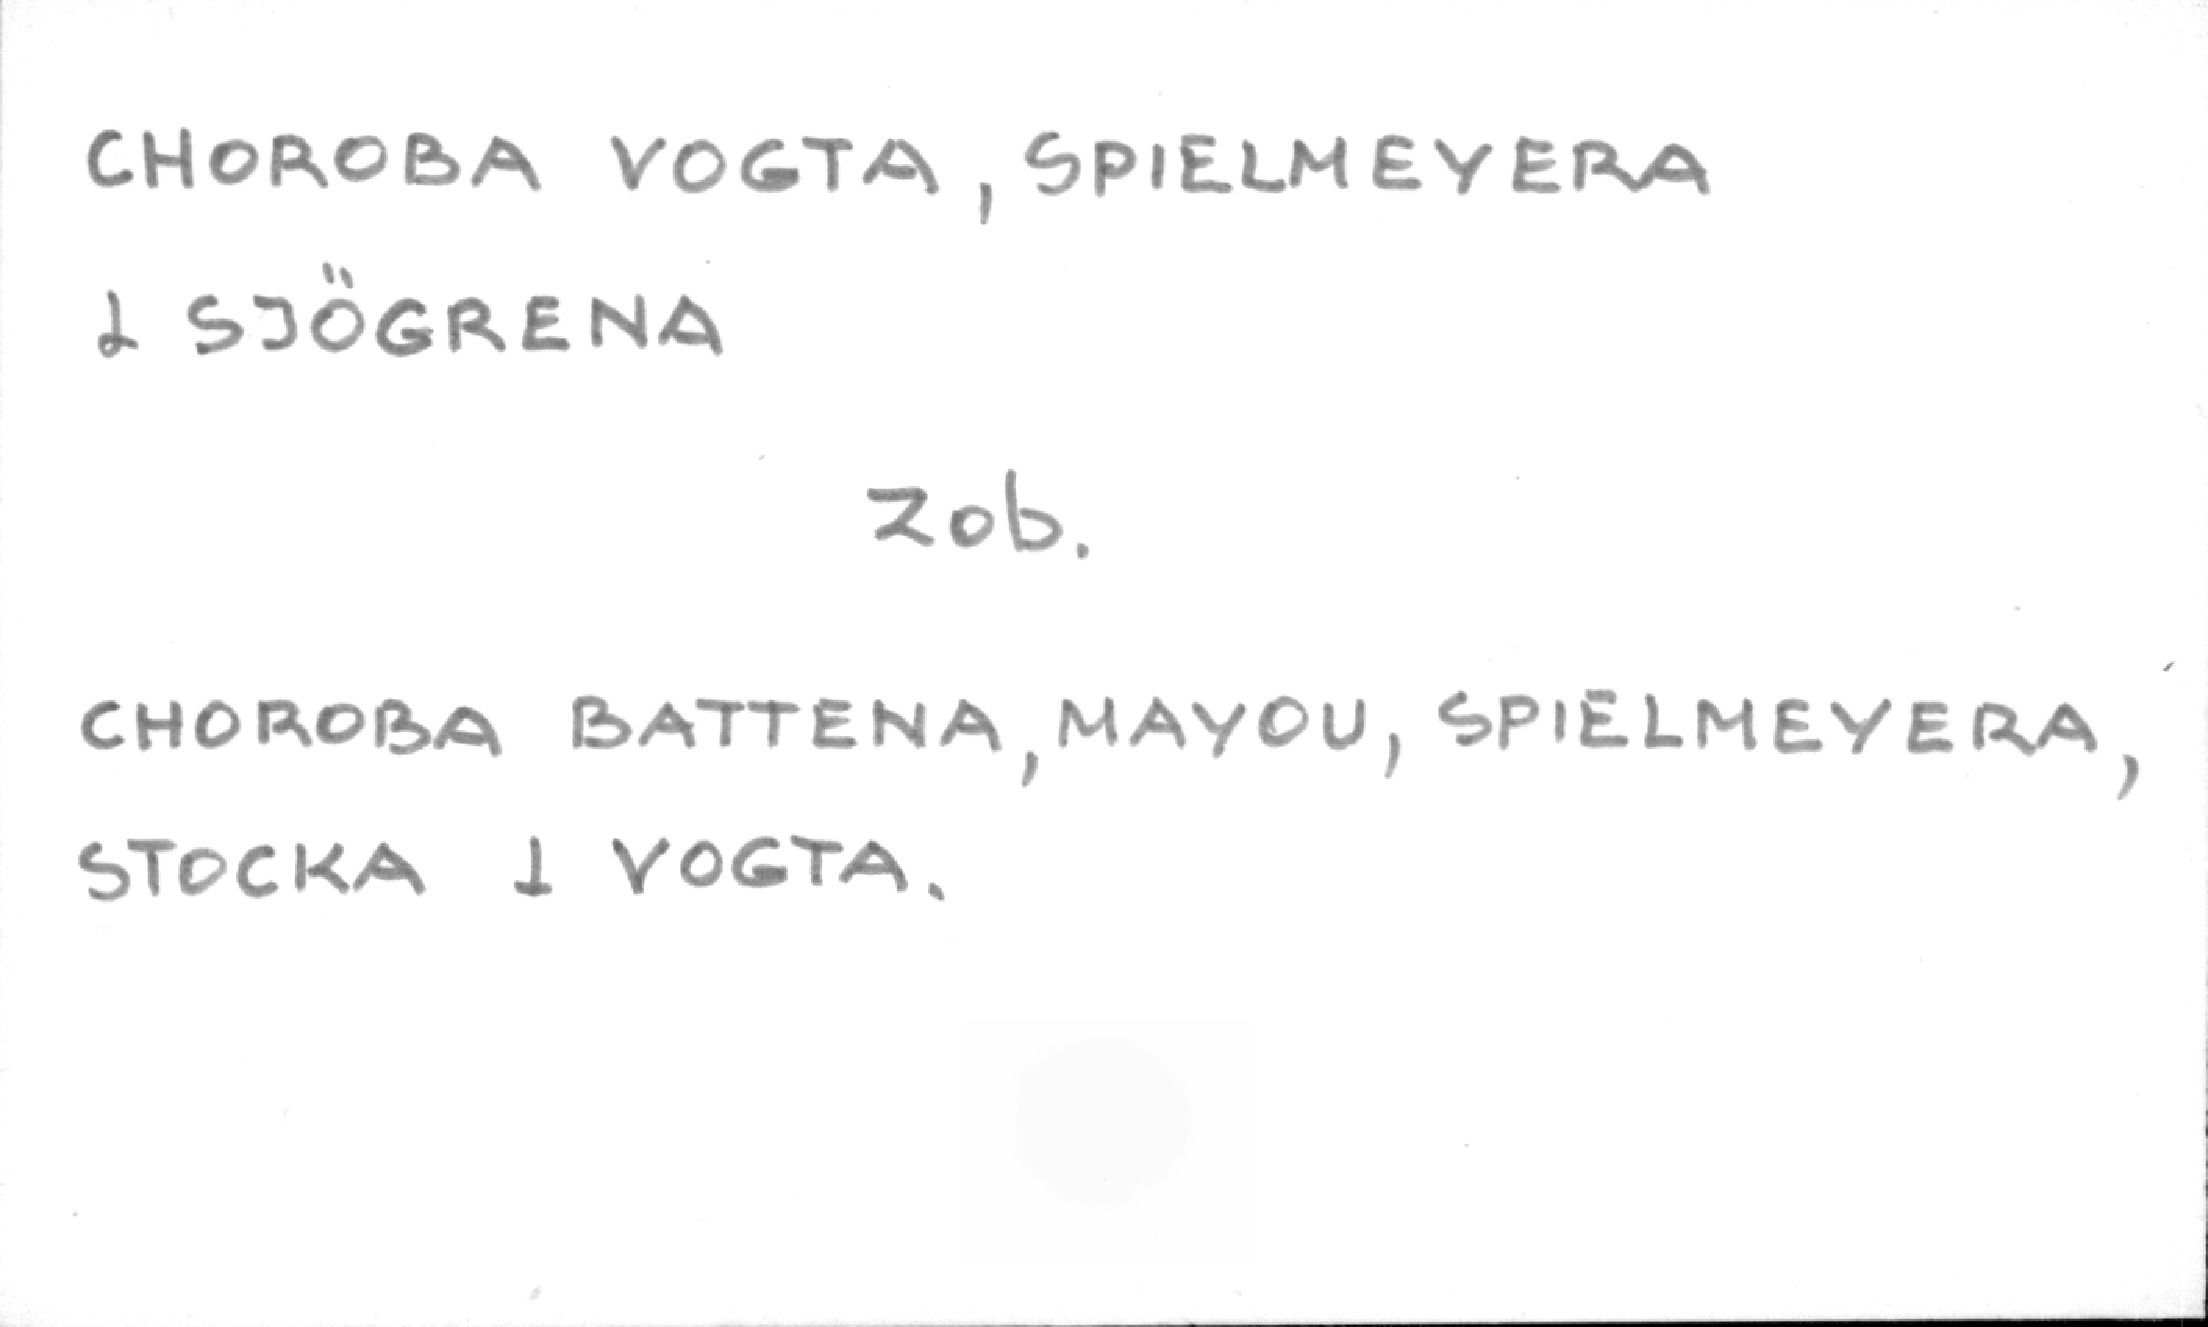 CHOROBA VOGTA, SPIELMEYERA
I SJÖGRENA
Zob.
CHOROBA BATTENA, MAYOU, SPIELMEYERA,
STOCKA I VOGTA.